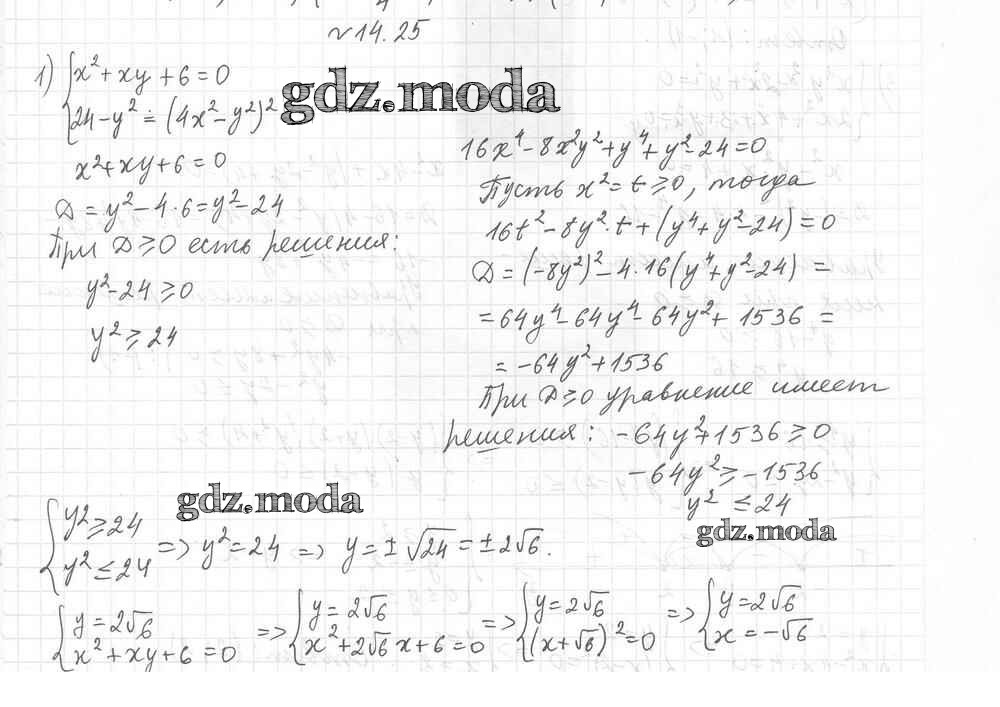 №14.25
1) { x² + xy + 6 = 0
{ 24 - y² = (4x² - y²)²
gdz.moda
x² + xy + 6 = 0
D = y² - 4·6 = y² - 24
При D ≥ 0 есть решения:
y² - 24 ≥ 0
y² ≥ 24
16x⁴ - 8x²y² + y⁴ + y² - 24 = 0
Пусть x² = t ≥ 0, тогда
16t² - 8y²·t + (y⁴ + y² - 24) = 0
D = (-8y²)² - 4·16(y⁴ + y² - 24) =
= 64y⁴ - 64y⁴ - 64y² + 1536 =
= -64y² + 1536
При D ≥ 0 уравнение имеет
решения: -64y² + 1536 ≥ 0
-64y² ≥ -1536
y² ≤ 24
gdz.moda
gdz.moda
{ y² ≥ 24
{ y² ≤ 24 => y² = 24 => y = ±√24 = ±2√6.
{ y = 2√6
{ x² + xy + 6 = 0
=> { y = 2√6
{ x² + 2√6 x + 6 = 0
=> { y = 2√6
{ (x + √6)² = 0
=> { y = 2√6
{ x = -√6